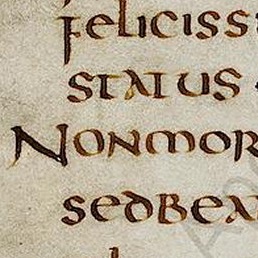 feliciss
status
Nonmor
sedbea